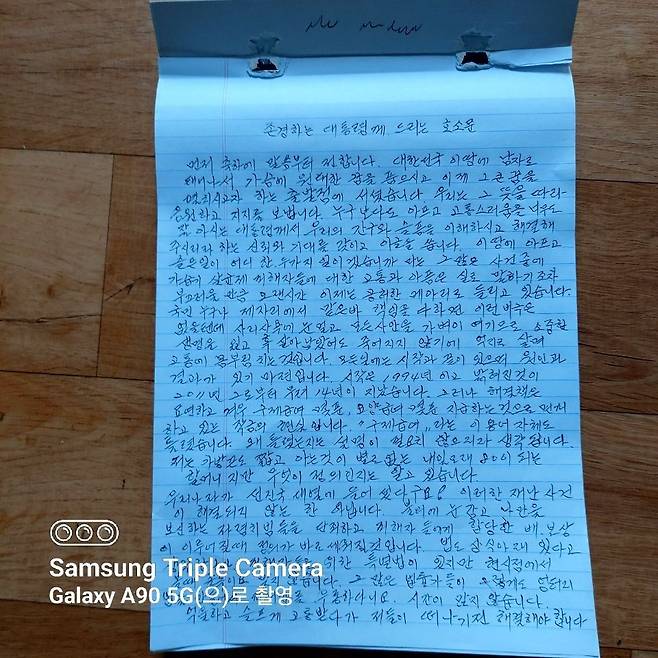 존경하는 대통령께 드리는 호소문
먼저 축하에 말씀부터 전합니다. 대한민국 이땅에 남자로
태어나서 가슴에 위대한 꿈을 품으시고 이제 그 큰 꿈을
펼치시고자 하는 출발점에 서셨습니다 우리는 그 뜻을 따라
응원하고 지지를 보냅니다. 누구보다도 아프고 고통스러움을 너무도
잘 아시는 대통령께서 우리의 절규와 슬픔을 이해하시고 해결해
주시리라 하는 신뢰와 기대를 갖이고 아뢰옵니다. 이 땅에 아프고
슬픈일이 어디 한 두가지 일이겠습니까 하는 그 많은 사건중에
가습기 살균제 피해자들에 대한 고통과 아픔은 실로 말하기조차
부끄러울 만큼 오랜시간 이제는 공허한 메아리로 들리고 있습니다.
국민 누구나 제자리에서 맡은바 책임을 다하면 이런 비극은
없을텐데 사리사욕에 눈멀고 모든사안을 가벼이 여기므로 소중한
생명을 잃고 혹 살아남았어도 죽어지지 않기에 억지로 살며
고통에 몸부림 치는것입니다. 모든일에는 시작과 끝이 있으며 원인과
결과가 있기 마련입니다. 시작은 1994년 이고 밝혀진것이
2011년 그로부터 무려 14년이 지났습니다. 그러나 해결책은
요연하고 겨우 구제급여 몇푼, 요양급여 몇푼 지급하는것으로 면피
하고 있는 작금의 현실입니다. "구제급여" 라는 이 용어 자체도
틀렸습니다. 왜 틀렸는지는 설명이 필요치 않으리라 생각됩니다.
저는 가방끈도 짧고 아는것이 별로없는 내일모래 80이 되는
할머니 지만 무엇이 정의인지는 알고 있습니다.
우리나라가 선진국 대열에 들어 섰다구요? 이러한 재난 사건
이 해결되지 않는 한 아닙니다. 불의에 눈감고 나만을
보신하는 자세처벌들을 한하고 피해자 들에게 합당한 배.보상
이 이루어질때 정의가 바로 세워질것입니다. 법도 살아야 있다고
위한 특별법이 있지만 현시점에서
않습니다. 그 많은 법률가들이 엉터리
시간이 없지 않습니다.
억울하고 슬프게 고통받다가 저들이 떠나기전 해결해야 합니다
Samsung Triple Camera
Galaxy A90 5G(으)로 촬영